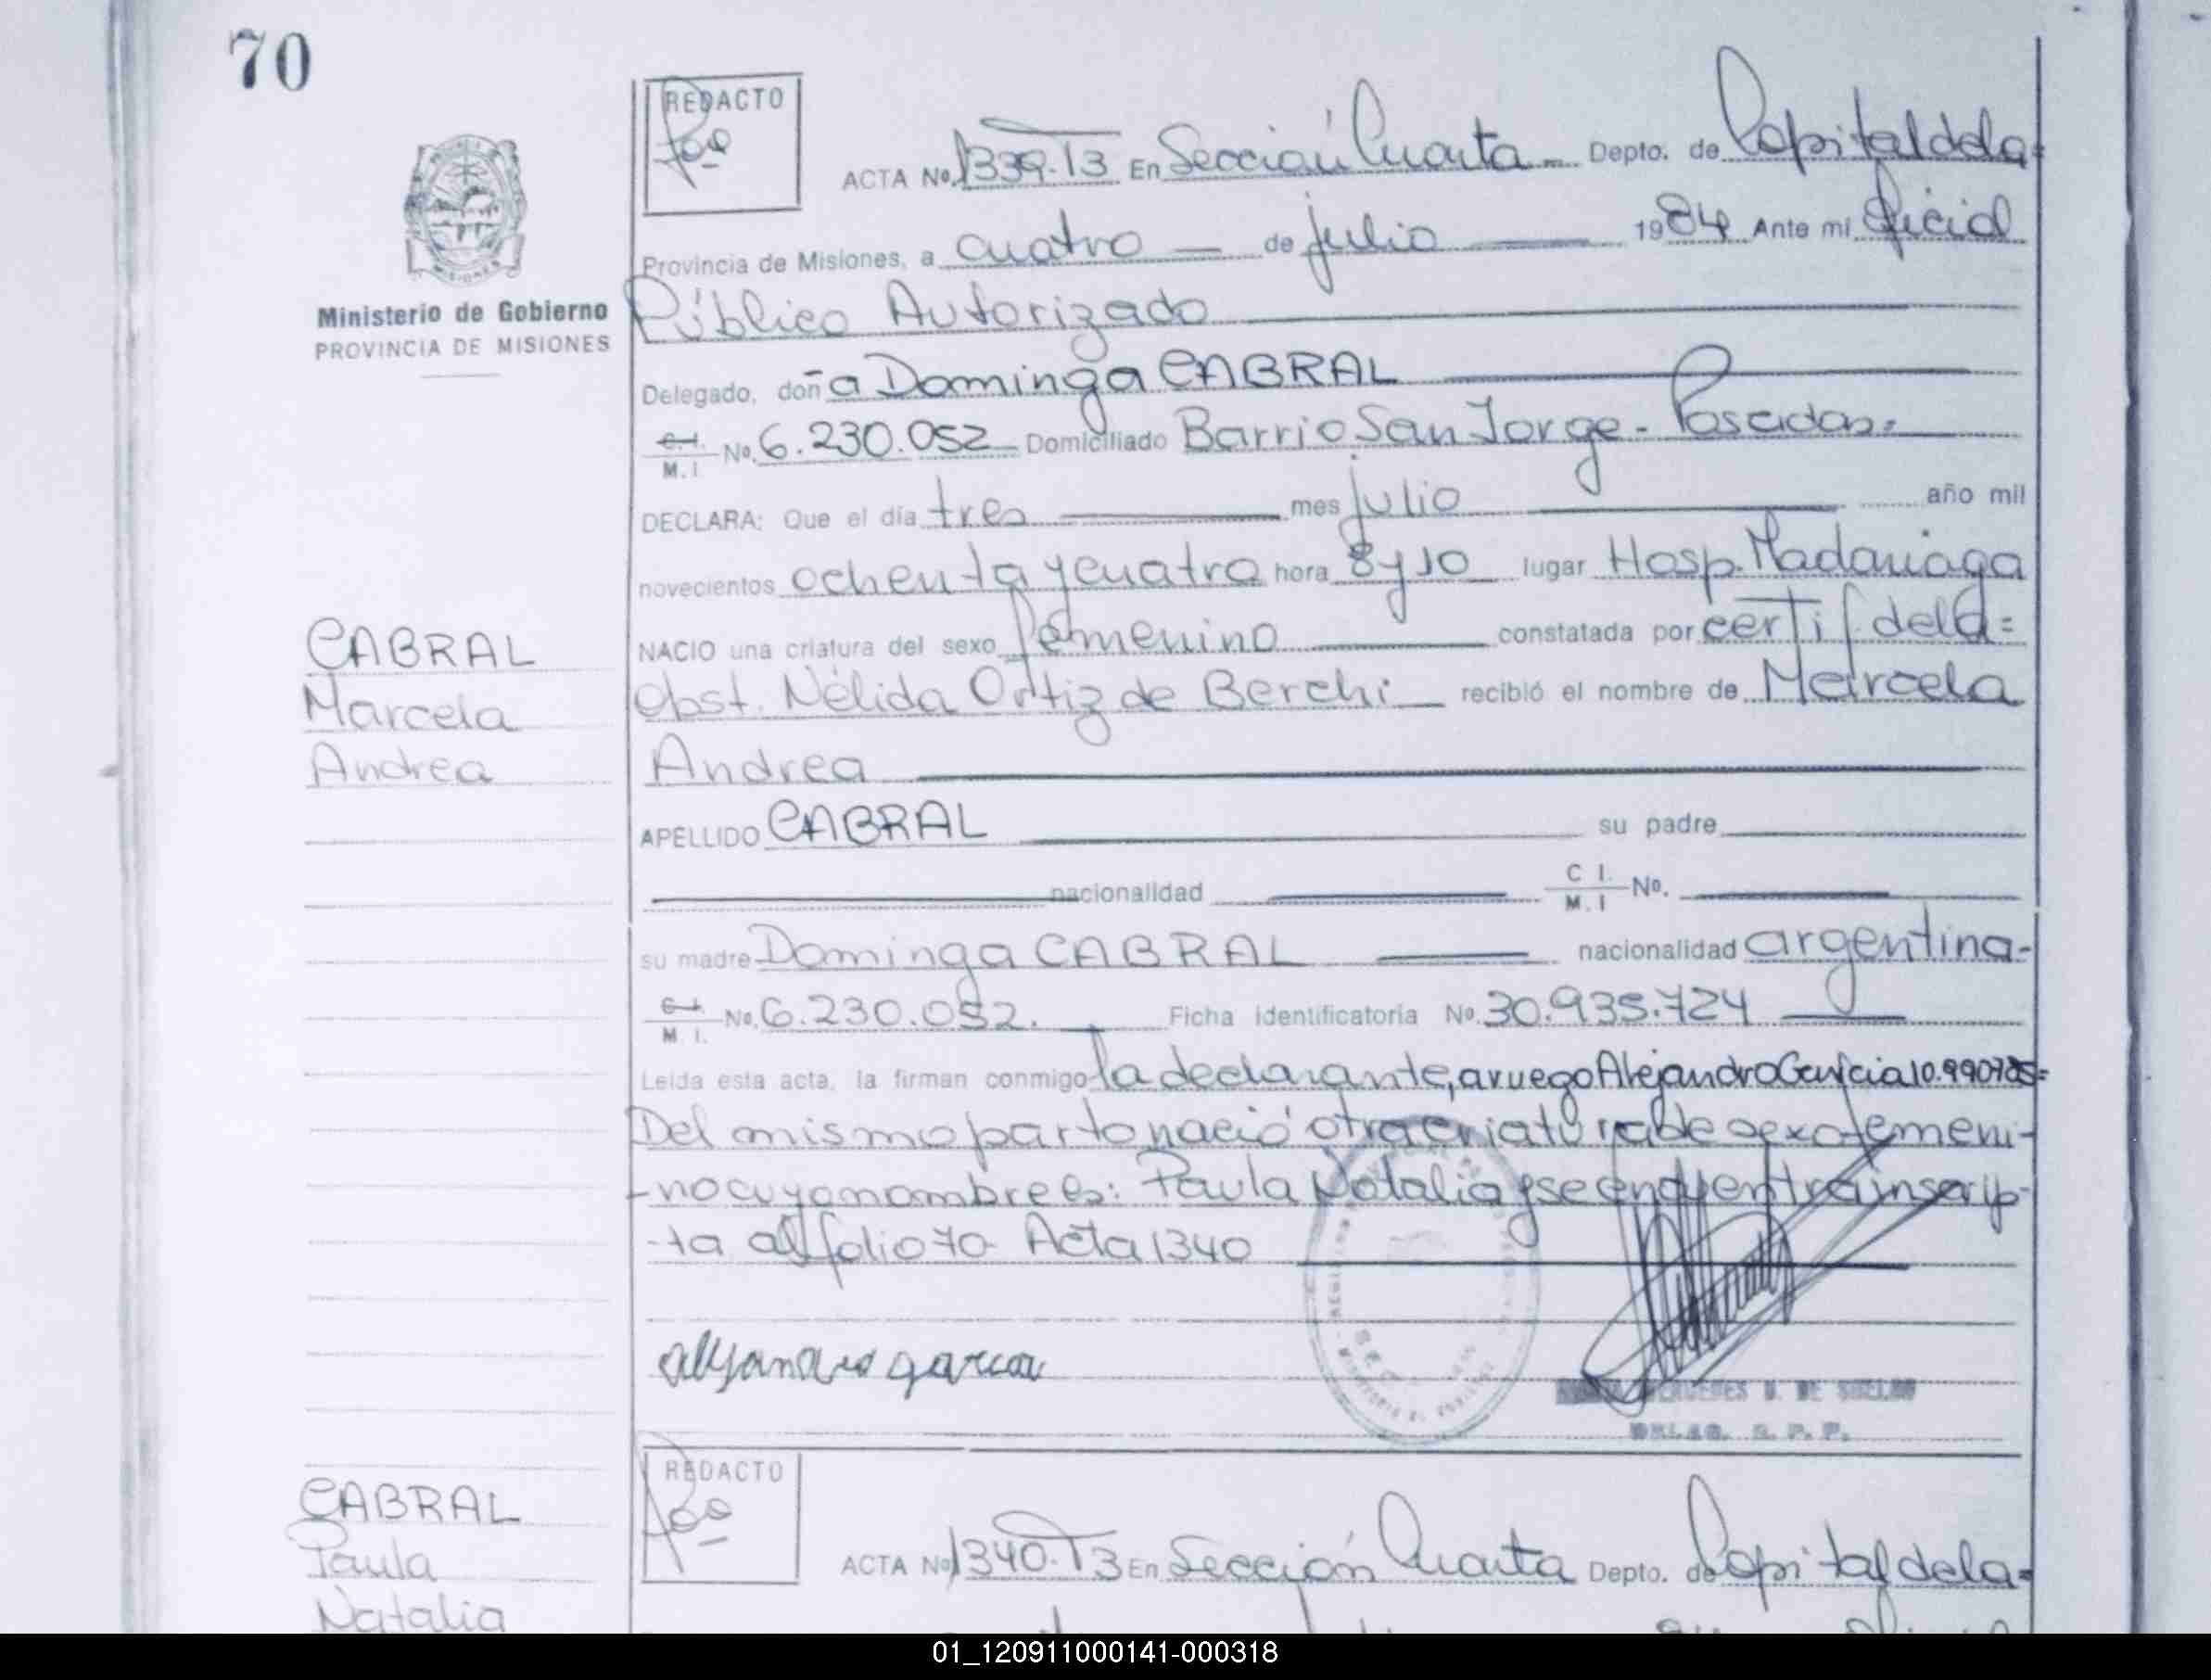 70
REDACTO
ACTA Nº 1339-T3 En Sección Cuarta Depto. de Capital de la-
Provincia de Misiones, a cuatro de julio 1984 Ante mi Oficial
Ministerio de Gobierno
PROVINCIA DE MISIONES
Público Autorizado
Delegado, doña Dominga CABRAL
C.I. M.I. Nº. 6.230.052 Domiciliado Barrio San Jorge - Posadas-
DECLARA: Que el día tres mes julio año mil
novecientos ochenta y cuatro hora 8 y 10 lugar Hosp. Madariaga
NACIO una criatura del sexo femenino constatada por certif de la=
Obst. Nélida Ortiz de Berchi recibió el nombre de Marcela
Andrea
CABRAL
Marcela
Andrea
APELLIDO CABRAL su padre
nacionalidad C I. M. I Nº.
su madre Dominga CABRAL nacionalidad argentina-
C.I. M. I. Nº. 6.230.052. Ficha identificatoria Nº. 30.935.724
Leida esta acta, la firman conmigo la declarante, a ruego Alejandro Garcia 10.990785=
Del mismo parto nació otra criatura de sexo femeni-
-no cuyo nombre es: Paula Natalia y se encuentra inscrip-
-ta al folio 70 Acta 1340
alejandro garcia
MERCEDES U. DE
DELEG. R. P. P.
REDACTO
ACTA Nº 1340-T3 En Sección Cuarta Depto. de Capital de la-
CABRAL
Paula
Natalia
01_120911000141-000318